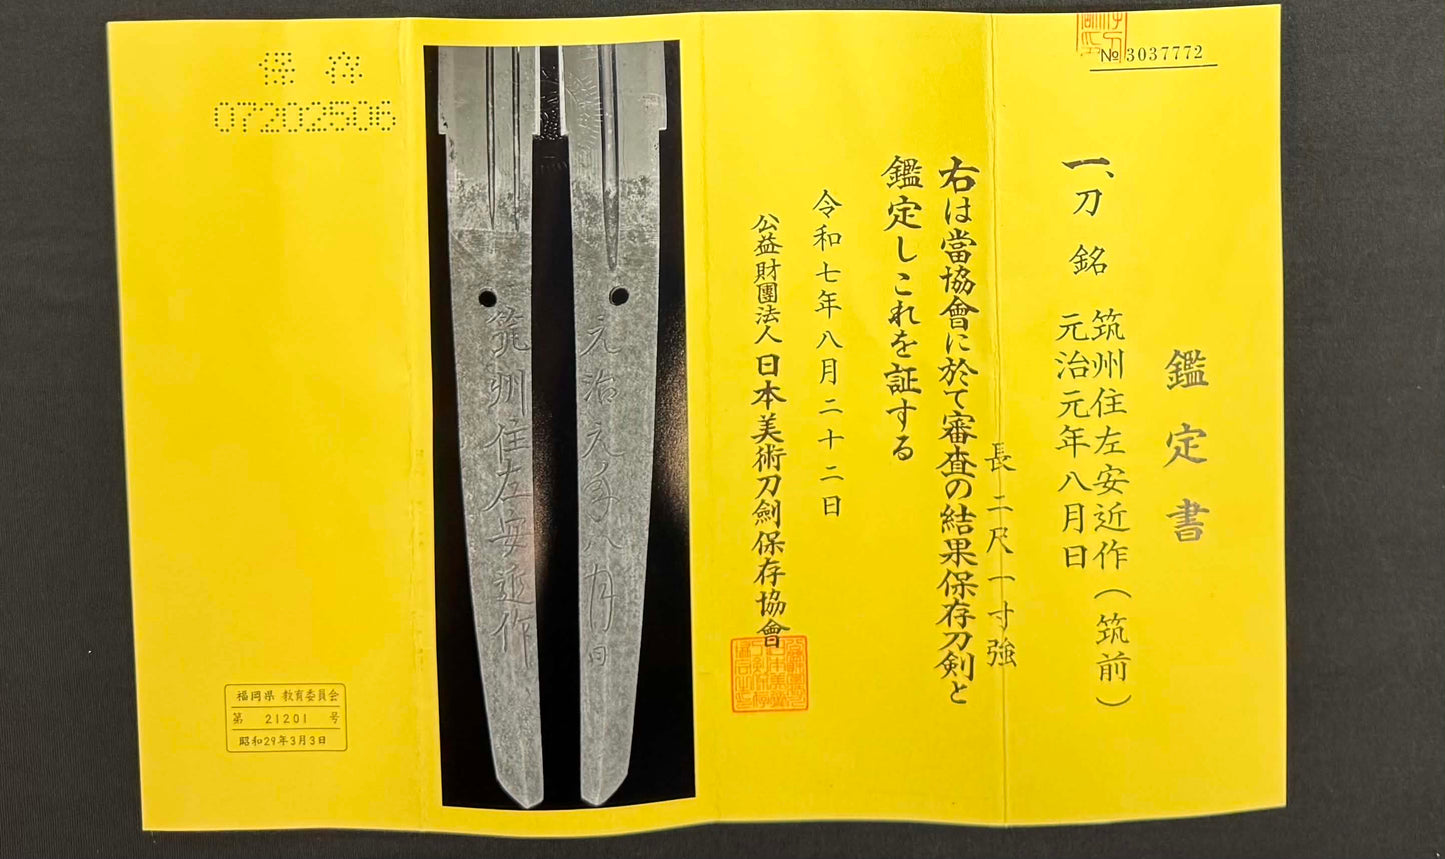 № 3037772
鑑定書
一、刀 銘 筑州住左安近作(筑前)
元治元年八月日
長 二尺一寸強
右は當協會に於て審査の結果保存刀剣と
鑑定しこれを証する
令和七年八月二十二日
公益財團法人日本美術刀劍保存協會
元治元年八月日
筑州住左安近作
保存
07202506
福岡県 教育委員会
第 21201 号
昭和29年3月3日